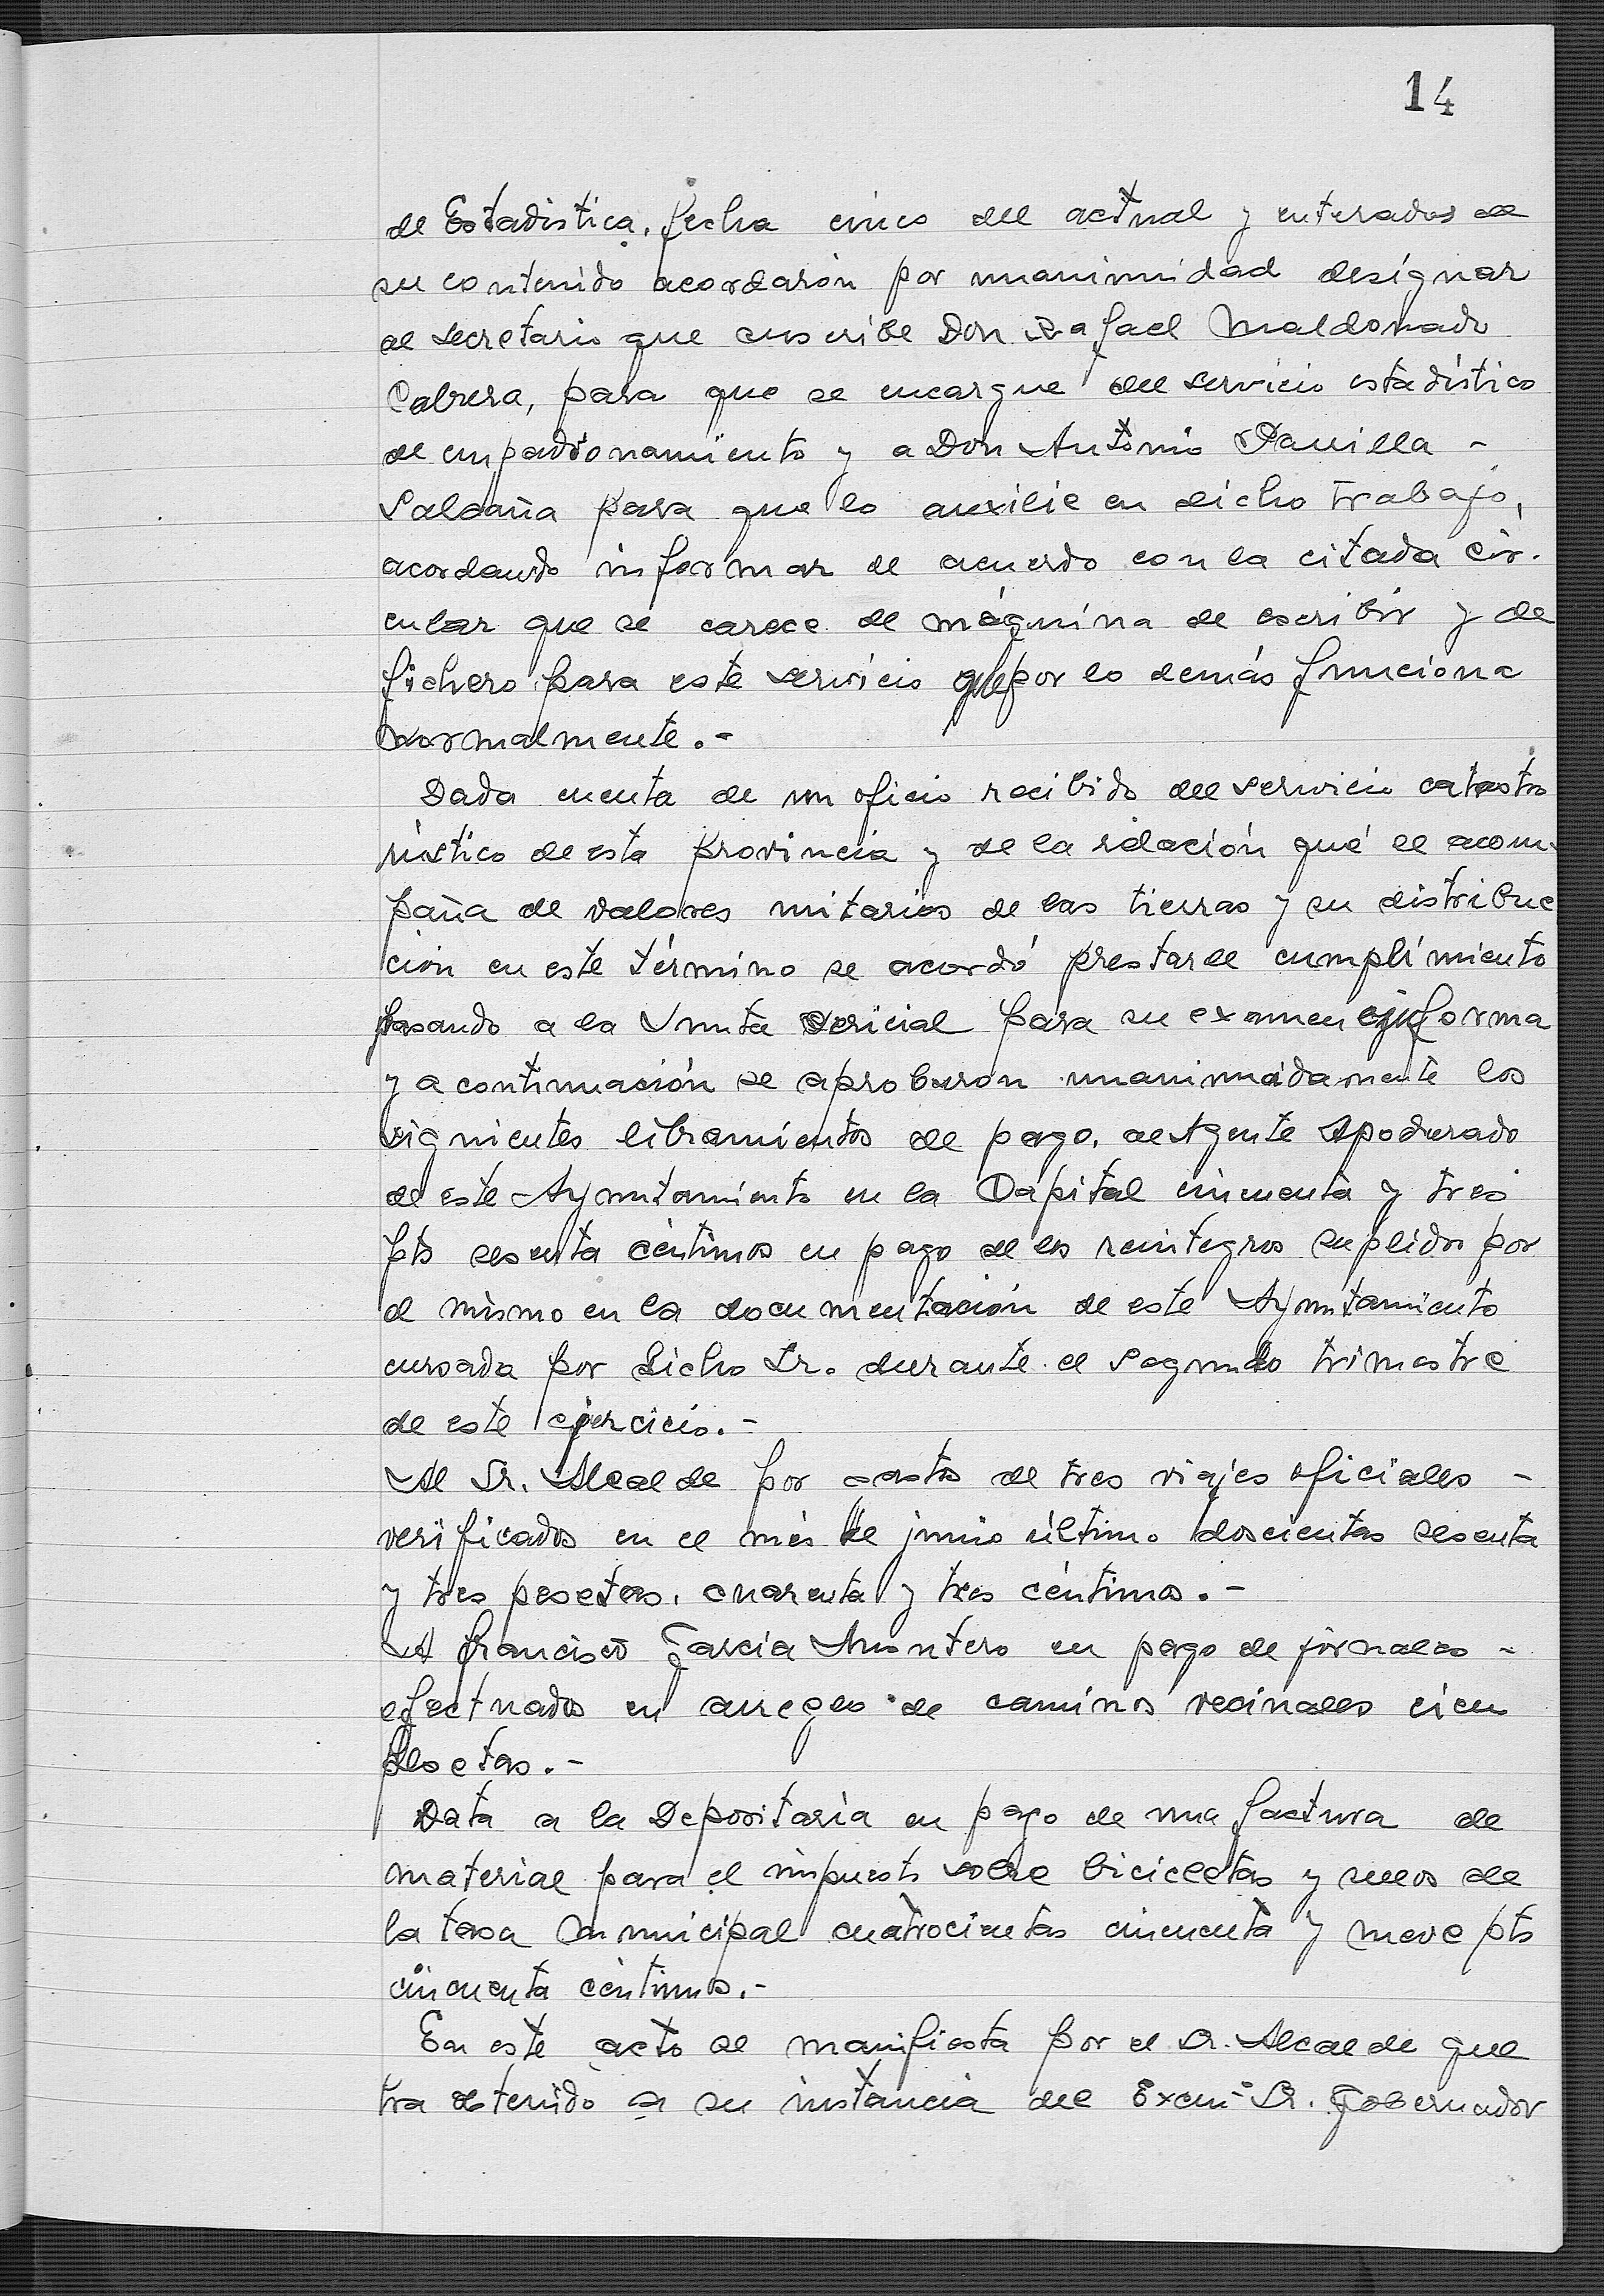 14
de Estadistica, fecha cinco del actual y enterados de
su contenido acordarón por unanimidad designar
al secretario que suscribe Don Rafael Maldonado
Cabrera, para que se encargue del servicio estadístico
de empadronamiento y a Don Antonio Pavilla -
Saldaña para que lo auxilie en dicho trabajo,
acordando informar de acuerdo con la citada cir-
cular que se carece de máquina de escribir y de
fichero para este servicio que por lo demás funciona
normalmente.-
Dada cuenta de un oficio recibido del servicio catastro
rústico de esta provincia y de la relación que el acom-
paña de valores unitarios de las tierras y su distribu
ción en este término se acordó prestarle cumplimiento
pasando a la Junta Pericial para su examen e informa
y a continuación se aprobaron unanimidamente los
siguientes libramientos de pago, al Agente Apoderado
de este Ayuntamiento en la Capital cincuenta y tres
pts sesenta céntimos en pago de los reintegros suplidos por
el mismo en la documentación de este Ayuntamiento
cursada por dicho Sr. durante el segundo trimestre
de este ejercicio.-
Al Sr. Alcalde por gastos de tres viajes oficiales -
verificados en el mes de junio último doscientas sesenta
y tres pesetas, cuarenta y tres céntimos.-
A Francisco García Montero en pago de jornales -
efectuados en arreglo de caminos vecinales cien
pesetas.-
Data a la Depositaria en pago de una factura de
material para el impuesto sobre bicicletas y sellos de
la tasa municipal cuatrocientas cincuenta y nueve pts
cincuenta céntimos.-
En este acto se manifiesta por el Sr. Alcalde que
ha obtenido a su instancia del Excmº Sr. Gobernador